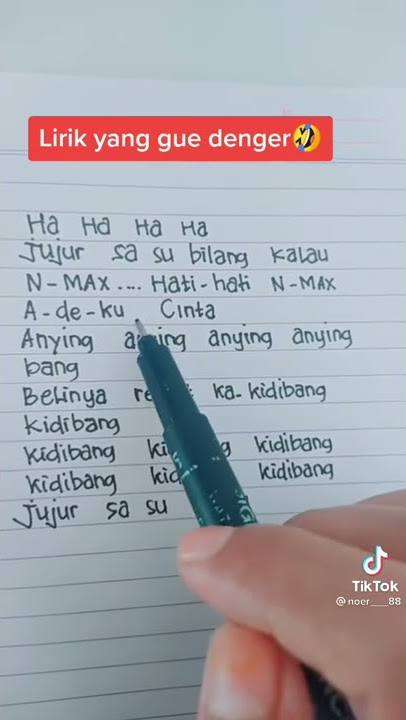 Lirik yang gue denger🤣
Ha Ha Ha Ha
Jujur sa su bilang kalau
N-MAX .... Hati-hati N-MAX
A-de-ku Cinta
Anying anying anying
bang
Belinya ka-kidibang
kidibang
kidibang kidibang
kidibang kidibang
Jujur sa su
TikTok
@noer___88